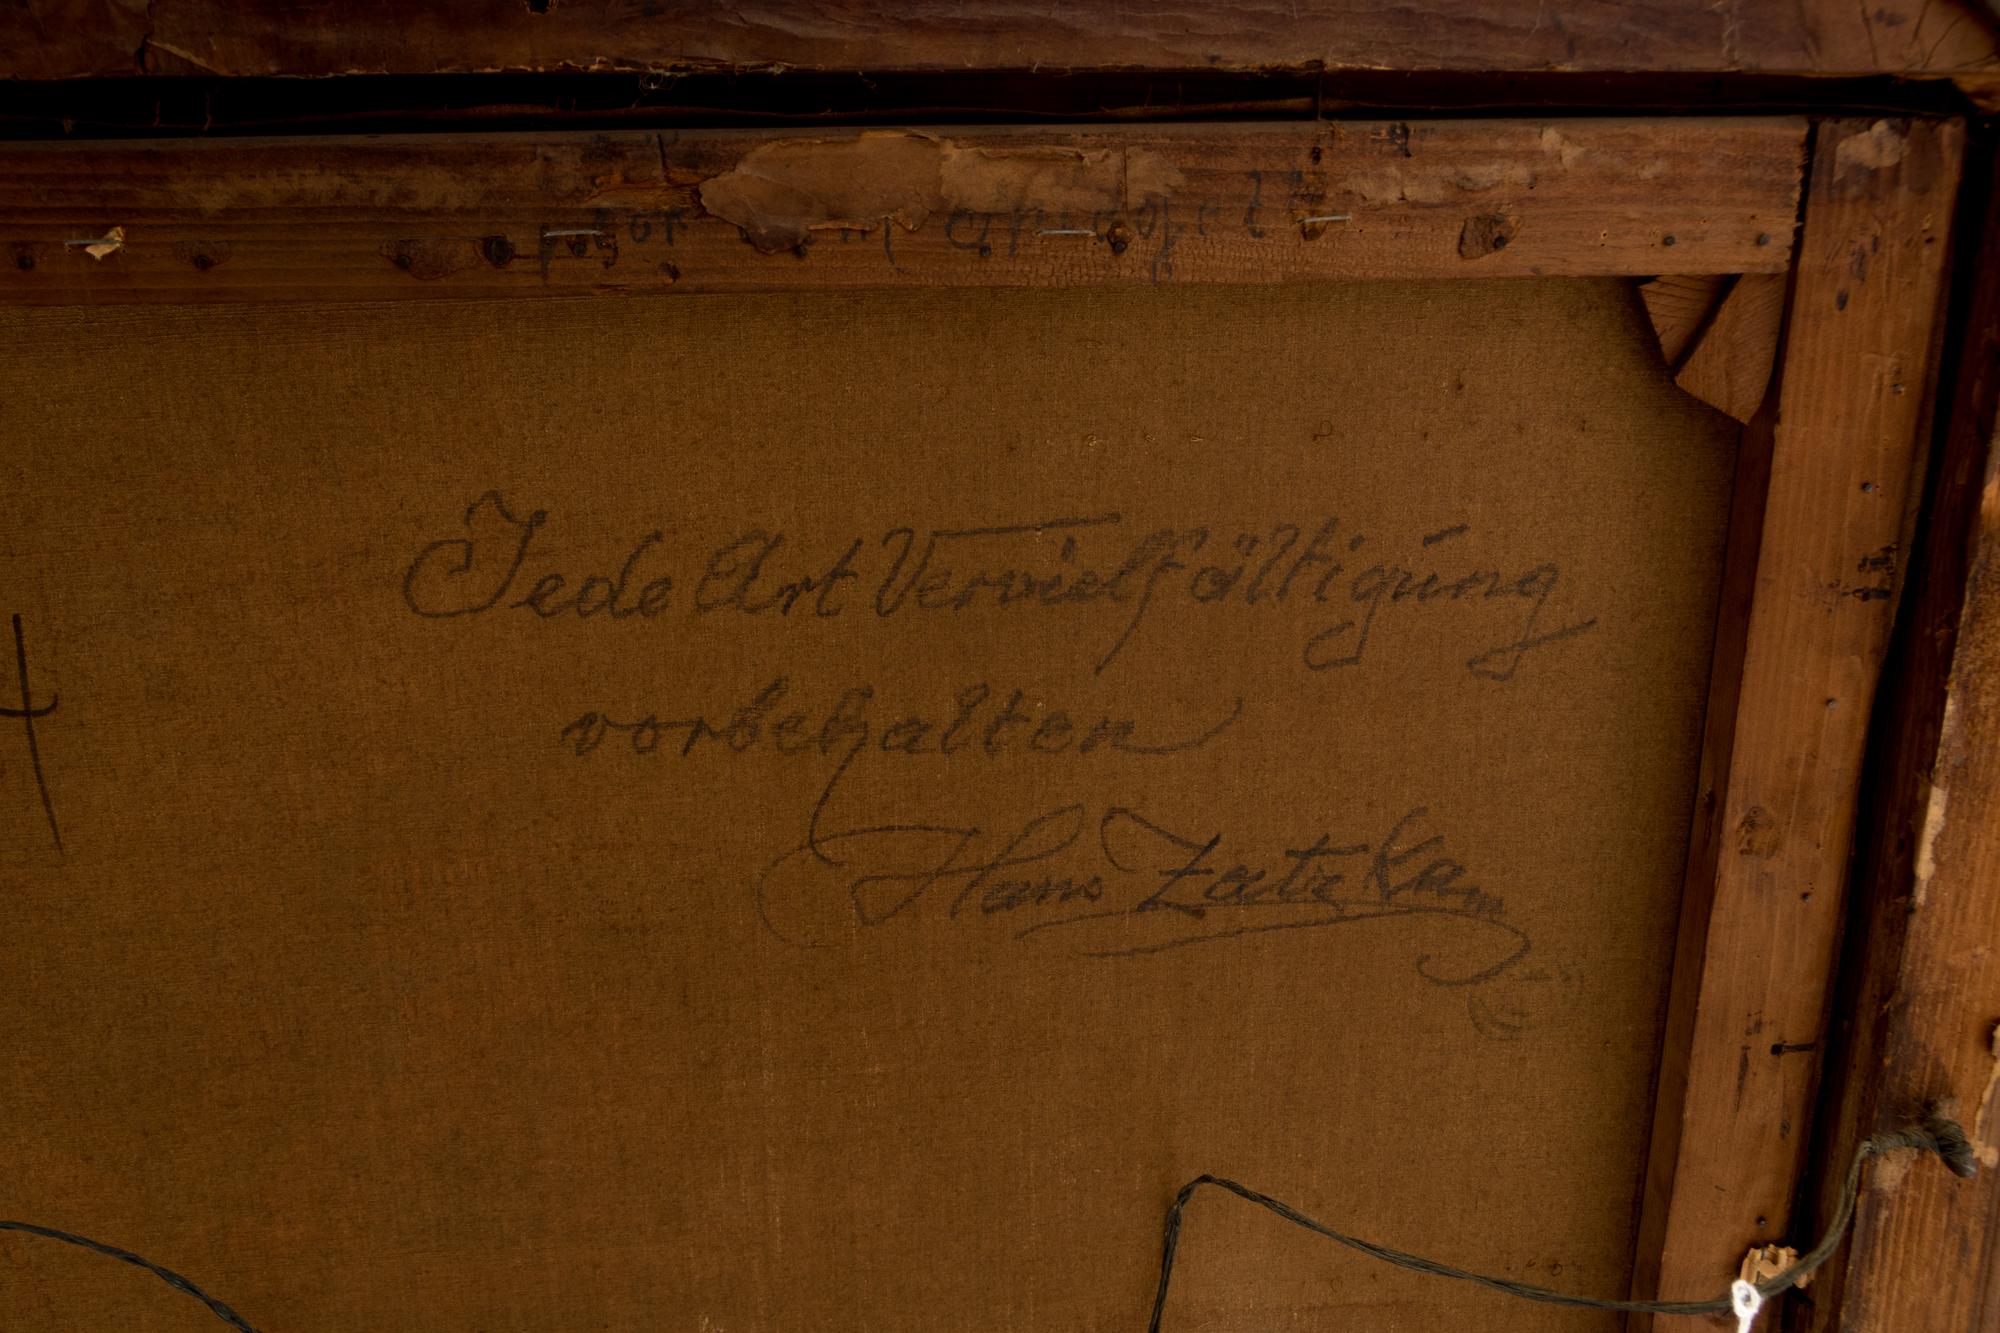 Jede Art Vervielfältigung
vorbehalten
Hans Zatzka
4